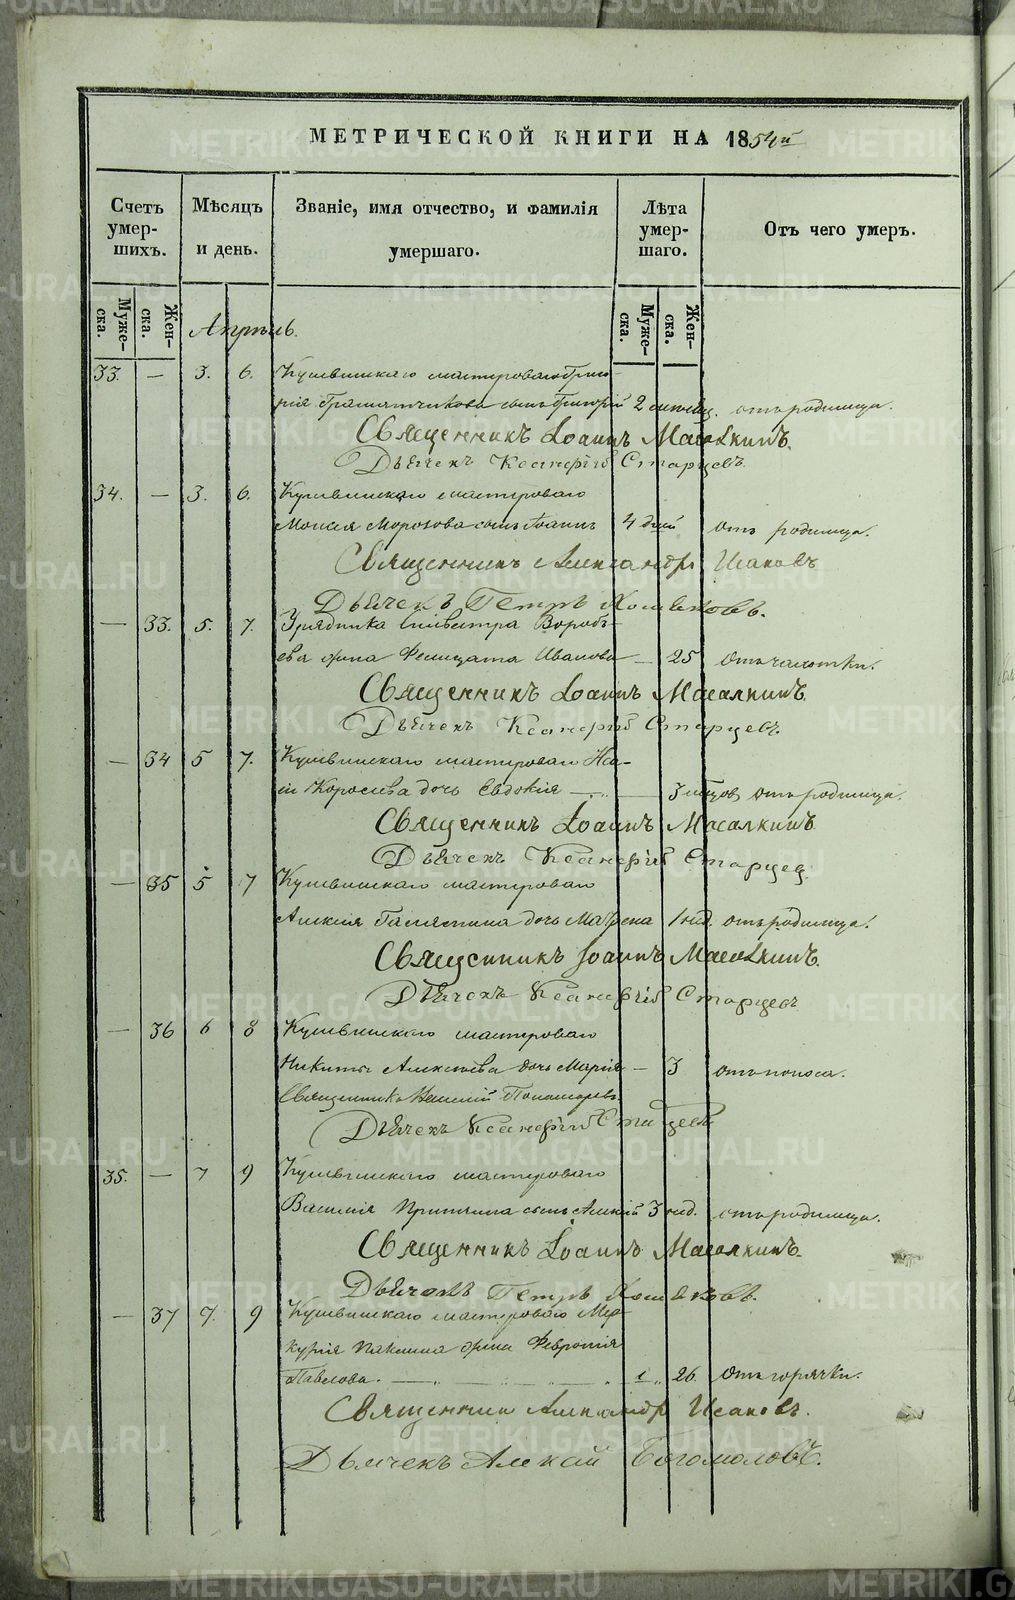 METRIKI.GASO-URAL.RU
МЕТРИЧЕСКОЙ КНИГИ НА 1854й
Счетъ умершихъ. Мѣсяцъ и день. Званіе, имя отчество, и фамилія умершаго. Лѣта умершаго. Отъ чего умеръ.
Мужеска. Женска. Мужеска. Женска.
Апрѣль.
33. — 3. 6. Кушвинскаго мастероваго Григо-
рія сынъ Григорій 2 отъ родимца.
Священникъ Іоаннъ Масалкинъ.
Дьячекъ Ксанфій Старцевъ.
34. — 3. 6. Кушвинскаго мастероваго
Моисея Морозова сынъ Іоаннъ 4 дней отъ родимца.
Священникъ Александръ Исаковъ
Дьячекъ Петръ Хомяковъ.
— 33. 5. 7. Урядника Сильвестра Воробь-
ева жена Фелицата Иванова — 25 отъ чахотки.
Священникъ Іоаннъ Масалкинъ.
Дьячекъ Ксанфій Старцевъ.
— 34 5 7. Кушвинскаго мастероваго
дочь Евдокія — 3 мѣсцов отъ родимца.
Священникъ Іоаннъ Масалкинъ
Дьячекъ Ксанфій Старцев
— 35 5 7 Кушвинскаго мастероваго
Алексія дочь Матрена 1 нед. отъ родимца.
Священникъ Іоаннъ Масалкинъ.
Дьячекъ Ксанфій Старцевъ
— 36 6 8 Кушвинскаго мастероваго
Никиты Алексѣева дочь Марія — 3 отъ поноса.
Священникъ Пономаревъ.
Дьячекъ Ксанфій Старцевъ
35. — 7 9 Кушвинскаго мастероваго
Василія сынъ Алексій 3 нед. отъ родимца.
Священникъ Іоаннъ Масалкинъ.
Дьячекъ Петръ Хомяковъ.
— 37 7. 9 Кушвинскаго мастероваго Мер-
курія жена Февронія
Павлова. — 26 отъ горячки.
Священник Александр Исаковъ.
Дьячекъ Алексѣй Богомоловъ.